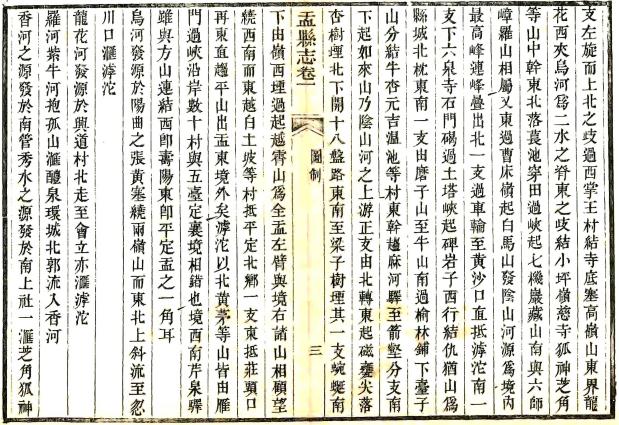 支左旋而上北之歧過西掌王村結寺底塞高嶺山東界龍
花西夾烏河爲二水之脊東之歧結小坪嶺慈寺狐神芝角
等山中幹東北落萇池穿田過峽起七機巖藏山南與六師
嶂羅山相屬又東過曹床嶺起白馬山發陰山河源爲境內
最高峰連峰疊出北一支過車輪至黃沙口直抵滹沱南一
支下六泉寺石門碣過土塔峽起碑岩子西行結仇猶山爲
縣城北枕東南一支由磨子山至牛山南過榆林鋪下臺子
山分結牛杏元吉温池等村東幹趨麻河驛至箭堅分支南
下起如來山乃陰山河之上游正支由北轉東起磁甕尖落
杏樹埋北下開十八盤路東南至梁子樹埋其一支蜿蜒南
盂縣志卷一
圖制
三
下由嶺西埋過起越霄山爲全盂左臂與境右諸山相顧望
繞西南而東越白土坡等村抵平定北鄉一支東抵莊頭口
再東直趨平山出盂東境外矣滹沱以北黃茅等山皆由雁
門過峽沿岸數十村與五臺定襄境相錯也境西南芹泉驛
雖與方山連結西卽壽陽東卽平定盂之一角耳
烏河發源於陽曲之張黃塞繞兩嶺山而東北上斜流至忽
川口滙滹沱
龍花河發源於興道村北走至會立亦滙滹沱
羅河紫牛河抱孤山滙醴泉環城北郭流入香河
香河之源發於南管秀水之源發於南上社一滙芝角狐神